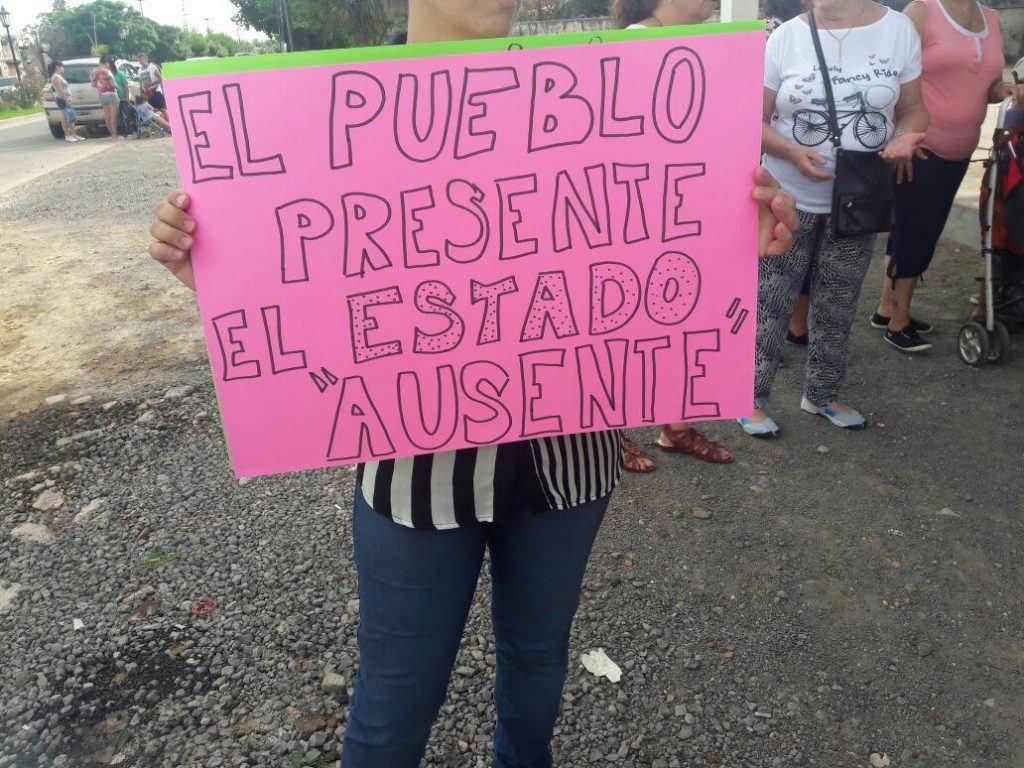 EL PUEBLO
PRESENTE
EL ESTADO
"AUSENTE"
Lovely
Fancy Ride